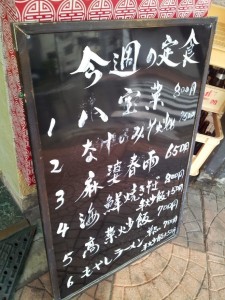 今週の定食
1 八宝菜 800円
2 なすのみそ炒め 850円
3 麻婆春雨 650円
4 海鮮焼きそば 800円
5 高菜炒飯 700円
6 もやしラーメン